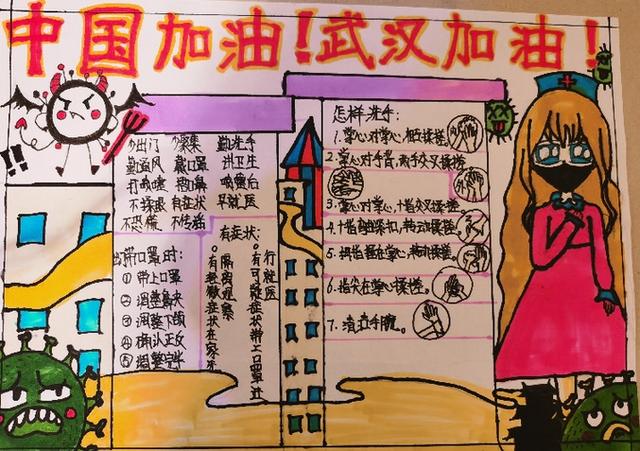 中国加油!武汉加油!
!!
少出门 少聚集 勤洗手
勤通风 戴口罩 讲卫生
打喷嚏 捂口鼻 喷嚏后
不揉眼 有症状 早就医
不恐慌 不传谣
带口罩时:
① 带上口罩
② 调整鼻夹
③ 调整下颌
④ 确认正反
⑤ 调整
有症状:
有轻微症状在家
隔离观察
有可疑症状带上口罩进
行就医
怎样洗手:
1. 掌心对掌心,相互揉搓
2. 掌心对手背,两手交叉揉搓
3. 掌心对掌心,十指交叉揉搓。
4. 十指弯曲紧扣,转动揉搓。
5. 拇指握在掌心,转动揉搓
6. 指尖在掌心揉搓。
7. 清洁手腕。